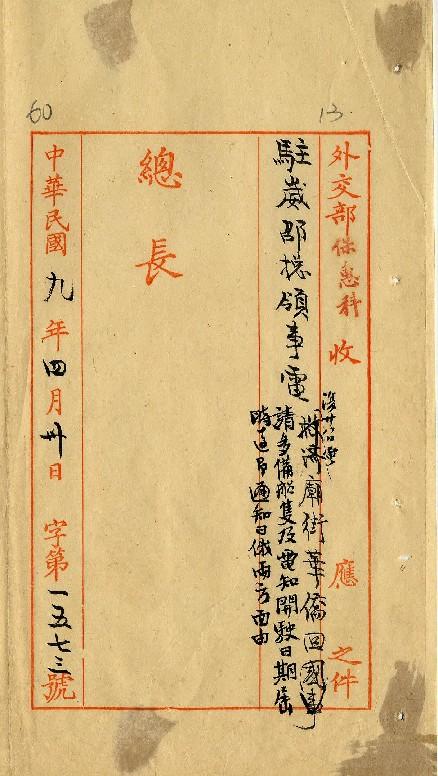 60
13
外交部保惠科收 應之件
駐崴邵總領事電
復廿八日電
救濟廟街華僑回國事
請多備船隻及電知開駛日期屆
時迳即通知日俄兩方面由
總長
中華民國九年四月卅日 字第一五七三號